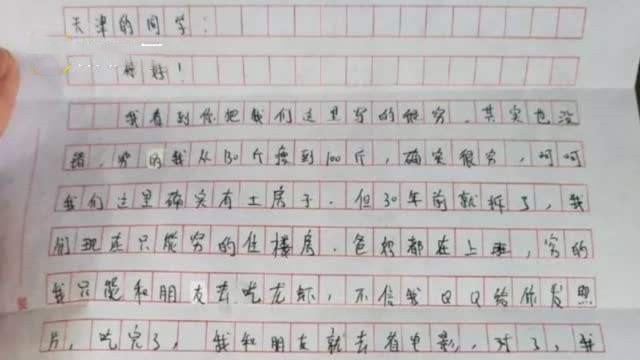 天津的同学:
你好!
我看到你把我们这里写的很穷,其实也没
错,穷的我从130斤瘦到100斤,确实很穷,呵呵
我们这里确实有土房子.但30年前就拆了,我
们现在只能穷的住楼房.爸妈都在上班,穷的
我只能和朋友去吃龙虾,不信我QQ给你发照
片,吃完了,我和朋友就去看电影,对了,我